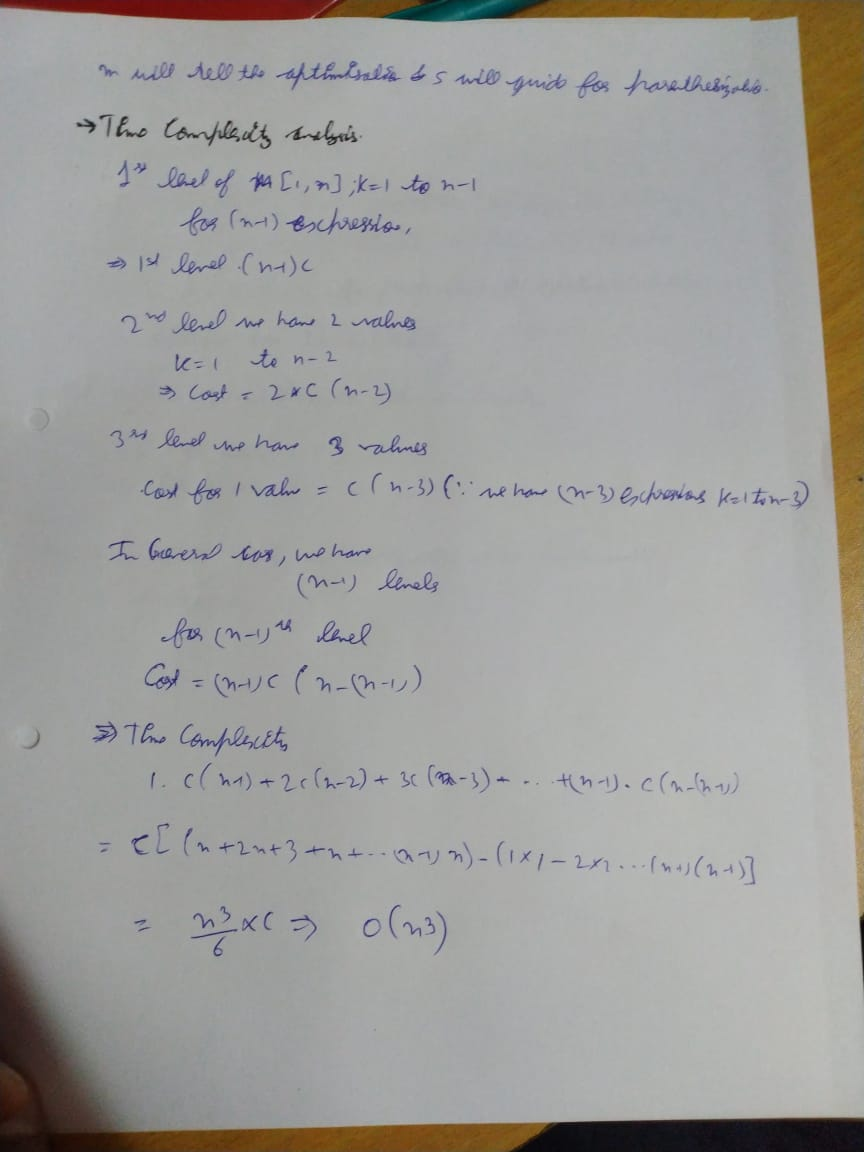 m will tell the optimisation & s will guide for parenthesization.
→ Time Complexity analysis.
1st level of m[1,n] ; k=1 to n-1
for (n-1) expression,
⇒ 1st level (n-1)c
2nd level we have 2 values
k=1 to n-2
⇒ Cost = 2*C (n-2)
3rd level we have 3 values
Cost for 1 value = c(n-3) (∵ we have (n-3) expressions k=1 to n-3)
In General case, we have
(n-1) levels
for (n-1)th level
Cost = (n-1)c (n-(n-1))
⇒ Time Complexity
1. c(n-1) + 2c(n-2) + 3c(n-3) + ... +(n-1). c(n-(n-1)
= c[(n+2n+3+n+...(n-1)n) - (1×1 - 2×2 ... (n-1)(n-1)]
= n³/6 × C ⇒ O(n³)